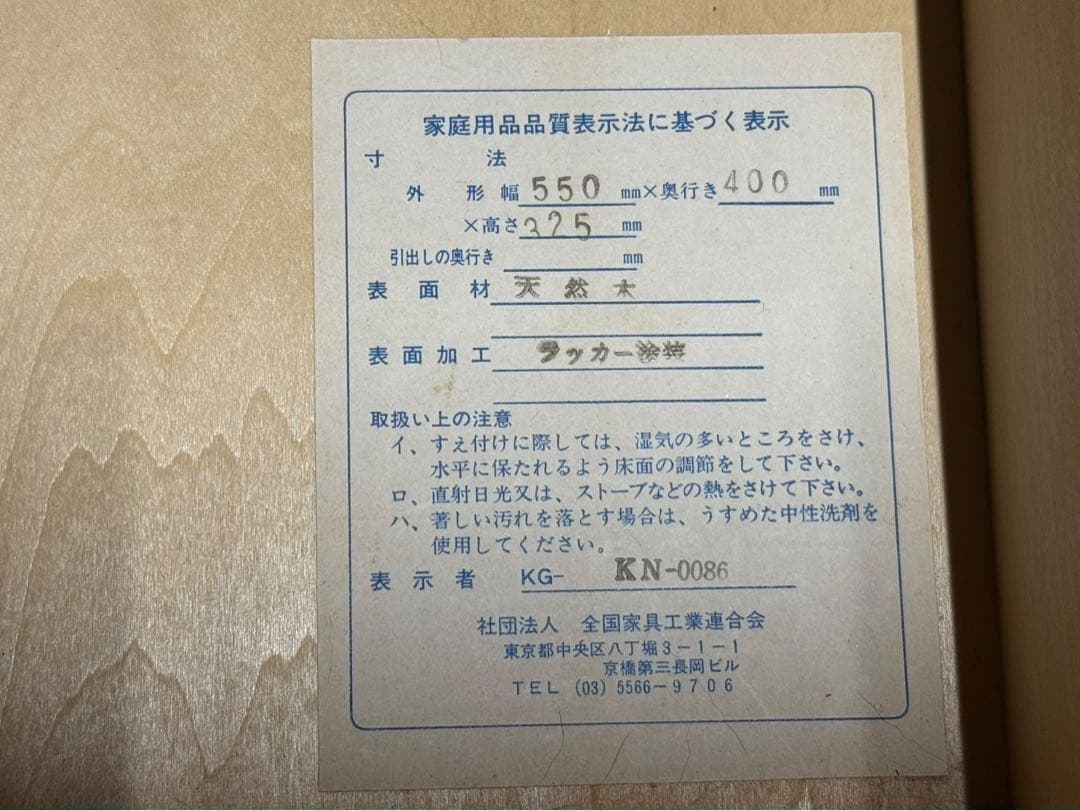 家庭用品品質表示法に基づく表示
寸法
外形 幅 550 mm×奥行き 400 mm
×高さ 325 mm
引出しの奥行き mm
表面材 天然木
表面加工 ラッカー塗装
取扱い上の注意
イ、すえ付けに際しては、湿気の多いところをさけ、
水平に保たれるよう床面の調節をして下さい。
ロ、直射日光又は、ストーブなどの熱をさけて下さい。
ハ、著しい汚れを落とす場合は、うすめた中性洗剤を
使用してください。
表示者 KG- KN-0086
社団法人 全国家具工業連合会
東京都中央区八丁堀3-1-1
京橋第三長岡ビル
TEL (03) 5566-9706